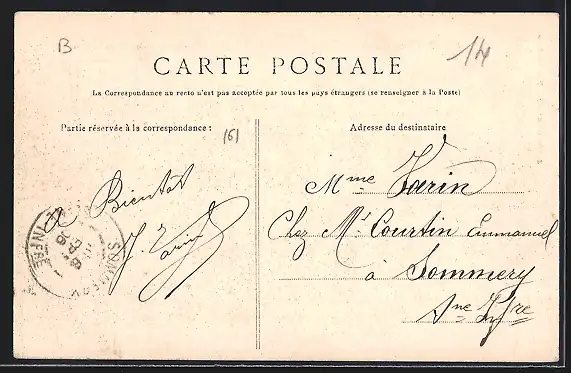 B
14
CARTE POSTALE
La Correspondance au recto n'est pas acceptée par tous les pays étrangers (se renseigner à la Poste)
Partie réservée à la correspondance :
161
A Bientot
Adresse du destinataire
Mme Varin
Chez Mr Courtin Emmanuel
à Sommery
Sne Infre
SOMMERY
INFRE